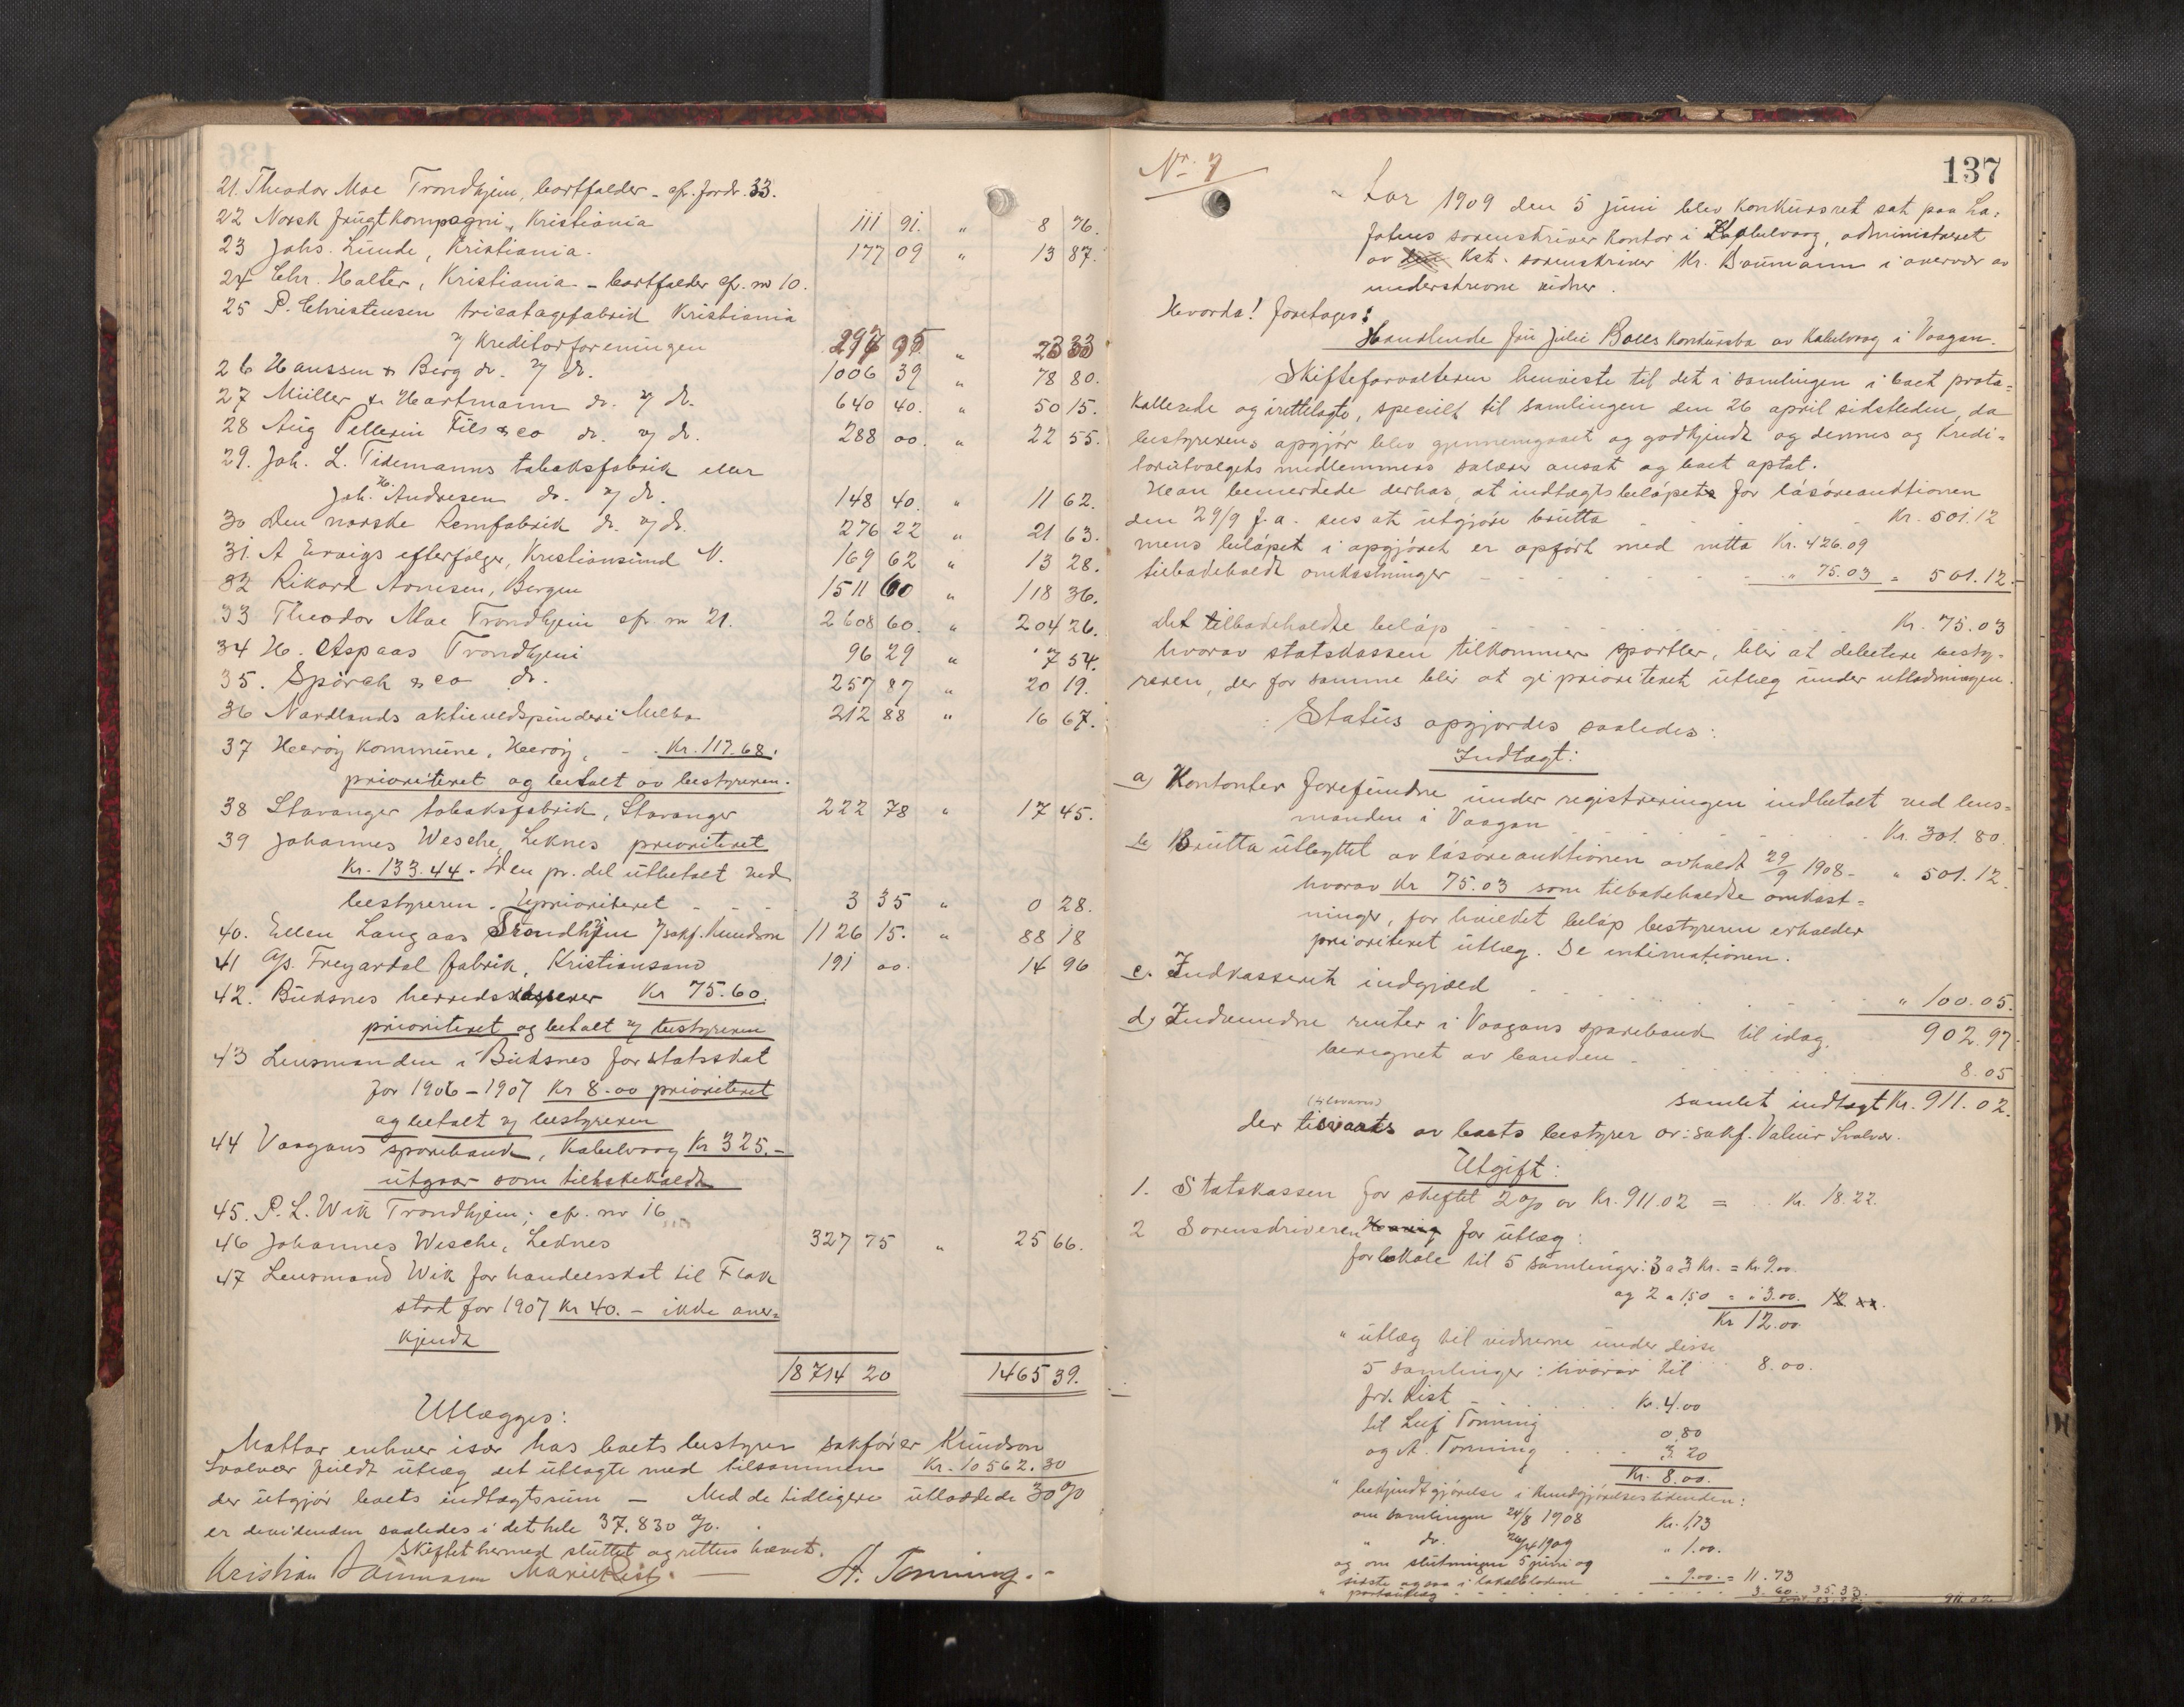 21. Theodor Moe Trondhjem, bortfalder - cfr. fordr. 33.
22 Norsk frugtkompagni, Kristiania 111 91. " 8 76.
23 Johs. Lunde, Kristiania. 177 09 " 13 87.
24 Chr. Holter, Kristiania - bortfalder cfr. nr 10.
25 P. Christensen tricotagefabrik Kristiania
v/ Kreditorforeningen 297 95 " 23 33
26 Hanssen & Berg do. v/ do. 1006 39 " 78 80.
27 Müller & Hartmann do. v/ do. 640 40. " 50 15.
28 Aug Pellerin Fils & co do. v/ do. 288 00. " 22 55.
29. Joh. L. Tidemanns tobaksfabrik eller
Joh. H. Andresen do. v/ do. 148 40. " 11 62.
30 Den norske Remfabrik do. v/ do. 276 22 " 21 63.
31. A Ervigs efterfølger, Kristiansund N. 169 62 " 13 28.
32 Rikard Arnesen, Bergen 1511 60 " 118 36.
33 Theodor Moe Trondhjem cfr nr 21. 2608 60. " 204 26.
34 H. Aspaas Trondhjem 96 29 " 7 54.
35. Spørck & co do. 257 87 " 20 19.
36 Nordlands aktieuldspinderi Melbo 212 88 " 16 67.
37 Herøy kommune, Herøy, - . Kr. 117.68.
prioritert og betalt av bestyreren.
38 Stavanger tobaksfabrik, Stavanger 222 78 " 17 45.
39 Johannes Wesche, Leknes prioritert
Kr. 133.44. Den pr. del utbetalt ved
bestyreren. Uprioritert - - - 3 35 " 0 28.
40. Ellen Langaas Trondhjem v/ sakf. Knudson 1126 15. " 88 18
41 A/s. Freyardal fabrik, Kristiansand 191 00. 14 96
42. Buksnes herredskasserer Kr 75.60.
prioritert og betalt v/ bestyreren
43 Lensmanden i Buksnes for statsskat
for 1906-1907 Kr 8.00 prioritert
og betalt v/ bestyreren
44 Vaagans sparebank, Kabelvaag Kr 325.-
utgaar som tilbakekaldt
45. P. L. Wik Trondhjem; cfr. nr 16
46 Johannes Wesche, Leknes 327 75 " 25 66.
47 Lensmand Wik for handelsskat til Flak
stad for 1907 Kr 40. - ikke aner=
kjendt
18714 20 1465 39.
Utlægges:
Mottar enhver især hos boets bestyrer sakfører Knudson
Svolvær fuldt utlæg det utlagte med tilsammen Kr. 10562.30
der utgjør boets indtægtssum - Med de tidligere utloddede 30 %
er dividenden saaledes i det hele 37.830 %.
Skiftet hermed sluttet og retten hævet.
Kristian Baumann Marie Rist. - A. Tonning. -
Nr. 7
137
Aar 1909 den 5 juni blev konkursret sat paa Lo=
fotens sorenskriverkontor i Kabelvaag, administreret
av kst. sorenskriver Kr. Baumann i overvær av
underskrevne vidner.
Hvorda! foretages:
Handlende fru Julie Bolls konkursbo av Kabelvaag i Vaagan.
Skifteforvalteren henviste til det i samlingen i boet proto=
kollerede og irettelagte, specielt til samlingen den 26 april sidstleden, da
bestyrerens opgjør blev gjennemgaaet og godkjendt og dennes og kredi=
torutvalgets medlemmers salærer ansat og boet optat.
Han bemerkede derhos, at indtægtsbeløpet for løsøreauktionen
den 29/9 f.a. sees at utgjøre brutto - - - Kr. 501.12
mens beløpet i opgjøret er opført med netto Kr. 426.09
tilbakeholdt omkostninger - - - " 75.03 = 501.12.
Det tilbakeholdte beløp - - - Kr. 75.03
hvorav statskassen tilkommer sportler, blir at debetere besty-
reren, der for samme blir at gi prioritert utlæg under utlodningen.
Status opgjordes saaledes:
Indtægt:
a) Kontanter forefundne under registreringen indbetalt ved lens=
manden i Vaagan - - - Kr. 301. 80.
b Brutto utbyttet av løsøreauktionen avholdt 29/9 1908 - " 501.12.
hvorav Kr 75.03 som tilbakeholdte omkost=
ninger, for hvilket beløp bestyreren erholder
prioritert utlæg. Se intimationen.
c. Indkasseret indgjæld - - - " 100.05.
902.97.
d) Indvundne renter i Vaagans sparebank til idag.
beregnet av banken - - - 8.05
samlet indtægt Kr. 911.02.
(tilsvares)
der tilsvares av boets bestyrer o: sakf. Valeur Svolvær.
Utgift:
1. Statskassen for skiftet 2 % av Kr. 911.02 = .. Kr. 18.22.
2 Sorenskriveren for utlæg:
for lokale til 5 samlinger: 3 a 3 kr. = Kr 9.00.
og 2 a 1.50 = " 3.00. 12 xx.
Kr 12.00
" utlæg til vidnerne under disse
5 samlinger: hvorav til 8.00.
frk. Rist - - - Kr. 4.00
til Leif Tonning 0.80
og A. Tonning - - - 3.20
Kr. 8.00.
" bekjendtgjørelse i Kundgjørelsestidenden:
om samlingen 24/8 1908 Kr. 1,73
" do. 26/4 1909 " 1.00.
og om slutningen 5 juni og
sidste ogsaa i lokalbladene " 9.00. = 11.73
" portoutlæg - - - 3.60. 35.33.
911.02